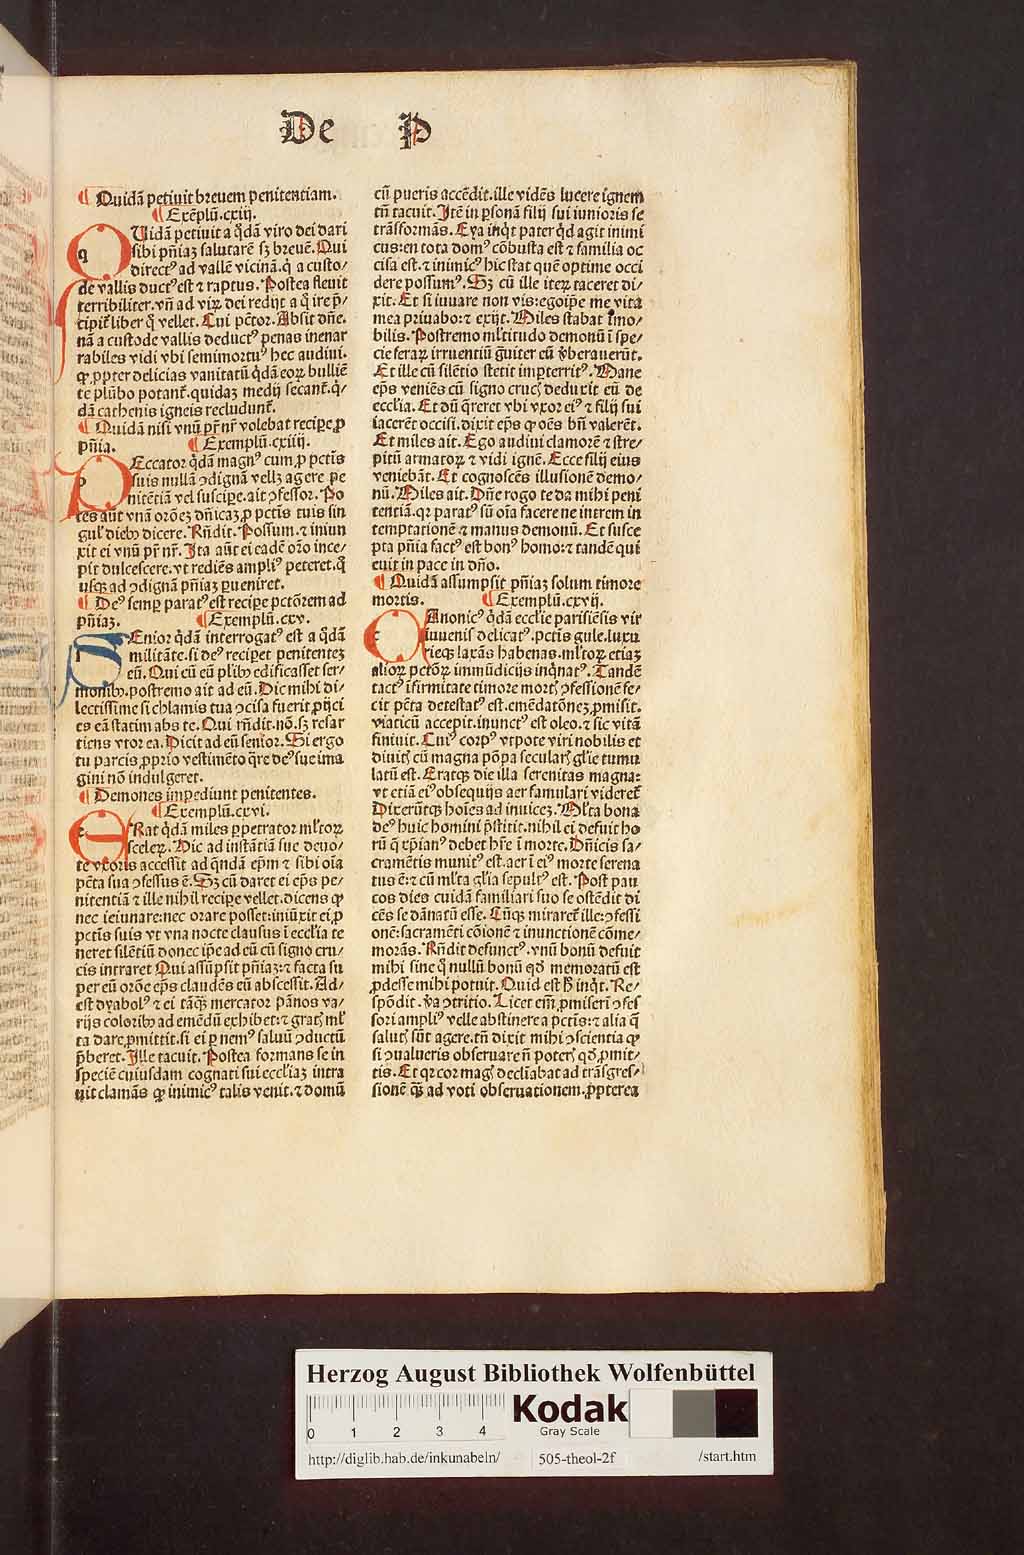 De P
¶ Quidā petiuit breuem penitentiam.
¶ Exēplū.cxiij.
QUidā petiuit a q̄dā viro dei dari
sibi pn̄iaꝫ salutarē sꝫ breuē. Qui
direct⁹ ad vallē vicinā. q̄ a custo⸗
de vallis duct⁹ est ⁊ raptus. Postea fleuit
terribiliter. vn̄ ad viꝝ dei redijt a q̄ ire p̄⸗
cipit̄ liber q̄ vellet. Cui pctōr. Absit dn̄e.
nā a custode vallis deduct⁹ penas inenar
rabiles vidi vbi semimortu⁹ hec audiui.
ꝙ ꝓpter delicias vanitatū q̄dā eoꝝ bulliē
te plūbo potant̄. quidaꝫ medij secant̄. q̄⸗
dā cathenis igneis recludunt̄.
¶ Quidā nisi vnū pr̄ nr̄ volebat recipe ꝓ
pn̄ia. ¶ Exemplū.cxiiij.
PEccator q̄dā magn⁹ cum ꝓ pctīs
suis nullā ꝯdignā vellꝫ agere pe
nitētiā vel suscipe. ait ꝯfessor. Po
tes aūt vnā orōeꝫ dn̄icaꝫ ꝓ pctīs tuis sin
gul' dieb⁹ dicere. Rn̄dit. Possum. ⁊ iniun
xit ei vnū pr̄ nr̄. Ita aūt ei eadē oꝛō ince⸗
pit dulcescere. vt rediēs ampli⁹ peteret. q̄
usqꝫ ad ꝯdignā pn̄iaꝫ ꝑueniret.
¶ De⁹ semp parat⁹ est recipe pctōrem ad
pn̄iaꝫ. ¶ Exemplū.cxv.
SEnior q̄dā interrogat⁹ est a q̄dā
militāte. si de⁹ recipet penitenteꝫ
eū. Qui cū eū plīb⁹ edificasset ser⸗
monib⁹. postremo ait ad eū. Dic mihi di⸗
lectissime si chlamis tua ꝯcisa fuerit ꝓijci
es eā statim abs te. Qui rn̄dit. nō. sꝫ resar
tiens vtor ea. Dicit ad eū senior. Si ergo
tu parcis ꝓprio vestimēto q̄re de⁹ sue ima
gini nō indulgeret.
¶ Demones impediunt penitentes.
¶ Exemplū.cxvi.
ERat q̄dā miles ꝑpetrator ml'toꝝ
sceleꝝ. Hic ad instātiā sue deuo⸗
te vxoris accessit ad q̄ndā ep̄m ⁊ sibi oīa
pctā sua ꝯfessus ē. Sꝫ cū daret ei ep̄s pe⸗
nitentiā ⁊ ille nihil recipe vellet. dicens ꝙ
nec ieiunare: nec orare posset: iniūxit ei ꝓ
pctīs suis vt vna nocte clausus ī eccl'ia te
neret silētiū donec ip̄e ad eū cū signo cru⸗
cis intraret Qui assūpsit pn̄iaꝫ: ⁊ facta su
per eū orōe ep̄s claudēs eū abscessit. Ad⸗
est dyabol⁹ ⁊ ei tāqꝫ mercator pānos va⸗
rijs colorib⁹ ad emēdū exhibet: ⁊ gratꝭ ml'
ta dare ꝓmittit. si ei ꝑ nem⁹ saluū ꝯductū
p̄beret. Ille tacuit. Postea formans se in
speciē cuiusdam cognati sui eccl'iaꝫ intra
uit clamās ꝙ inimic⁹ talis venit. ⁊ domū
cū pueris accēdit. ille vidēs lucere ignem
tn̄ tacuit. Itē in ꝑsonā filij sui iunioris se
trāsformās. Eya inq̄t pater q̄d agit inimi
cus: en tota dom⁹ cōbusta est ⁊ familia oc
cisa est. ⁊ inimic⁹ hic stat quē optime occi
dere possum⁹. Sꝫ cū ille iteꝝ taceret di⸗
xit. Et si iuuare non vis: egoip̄e me vita
mea priuabo: ⁊ exijt. Miles stabat īmo⸗
bilis. Postremo ml'titudo demonū ī spe⸗
cie feraꝝ irruentiū grauiter eū ṽberauerūt.
Et ille cū silētio stetit impterrit⁹. Mane
ep̄s veniēs cū signo crucꝭ deduxit eū de
eccl'ia. Et dū q̄reret vbi vxor ei⁹ ⁊ filij sui
iacerēt occisi. dixit ep̄s ꝙ oēs bn̄ valerēt.
Et miles ait. Ego audiui clamorē ⁊ stre⸗
pitū armatoꝝ ⁊ vidi ignē. Ecce filij eius
veniebāt. Et cognoscēs illusionē demo⸗
nū. Miles ait. Dn̄e rogo te da mihi peni
tentiā. qꝛ parat⁹ sū oīa facere ne intrem in
temptationē ⁊ manus demonū. Et susce
pta pn̄ia fact⁹ est bon⁹ homo: ⁊ tandē qui
euit in pace in dn̄o.
¶ Quidā assumpsit pn̄iaꝫ solum timore
mortis. ¶ Exemplū.cxvij.
CAnonic⁹ q̄dā ecclie parisiēsis vir
iuuenis delicat⁹. pctīs gule. luxu
rieqꝫ laxās habenas. ml'toꝝ etiaꝫ
alioꝝ pctōꝝ immūdicijs inq̄nat⁹. Tandē
tact⁹ ī firmitate timore mortꝭ ꝯfessionē fe⸗
cit pctā detestat⁹ est. emēdatōneꝫ ꝓmisit.
viaticū accepit. inunct⁹ est oleo. ⁊ sic vitā
finiuit. Cui⁹ corp⁹ vtpote viri nobilis et
diuitꝭ cū magna pōpa secularꝭ gl'ie tumu
latū est. Eratqꝫ die illa serenitas magna:
vt etiā ei⁹ obsequijs aer famulari videret̄
Dixerūtqꝫ hoīes ad inuiceꝫ. Ml'ta bona
de⁹ huic homini p̄stitit. nihil ei defuit ho
rū q̄ xp̄ian⁹ debet hr̄e ī morte. Dn̄icis sa⸗
cramētis munit⁹ est. aer ī ei⁹ morte serena
tus ē: ⁊ cū ml'ta gl'ia sepult⁹ est. Post pau
cos dies cuidā familiari suo se ostēdit di
cēs se dānatū esse. Cūqꝫ miraret̄ ille: ꝯfessi
onē: sacramēti cōionē ⁊ inunctionē cōme⸗
morās. Rn̄dit defunct⁹. vnū bonū defuit
mihi sine q̄ nullū bonū qd̄ memoratū est
ꝓdesse mihi potuit. Quid est h̄ inq̄t. Re⸗
spōdit. ṽa ꝯtritio. Licet em̄ ꝓmiseri ꝯfes
sori ampli⁹ velle abstinere a pctīs: ⁊ alia q̄
salutꝭ sūt agere. tn̄ dixit mihi ꝯscientia ꝙ
si ꝯualueris obseruare n̄ poterꝭ qd̄ ꝓmit⸗
tis. Et qꝛ cor magꝭ declīabat ad trāsgres⸗
sionē qꝫ ad voti obseruationem. ꝓpterea
Herzog August Bibliothek Wolfenbüttel
0 1 2 3 4
Kodak
Gray Scale
http://diglib.hab.de/inkunabeln/ 505-theol-2f /start.htm